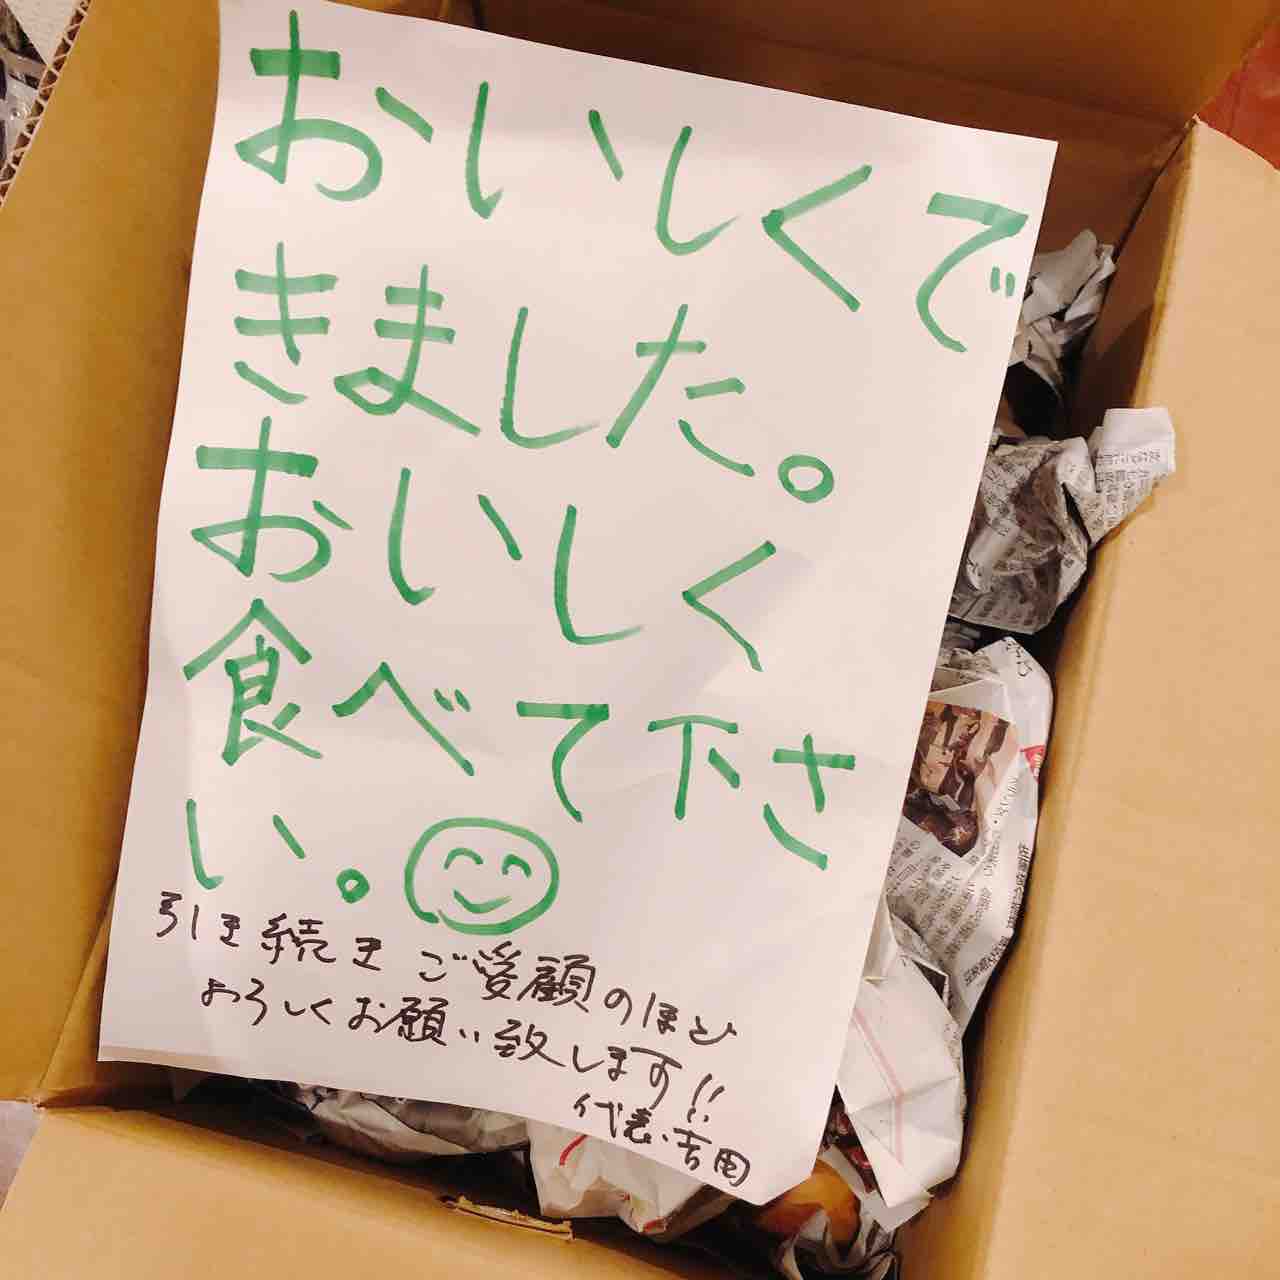 おいしくで
きました。
おいしく
食べて下さ
い。
引き続きご愛顧のほど
よろしくお願い致します!!
代表 吉田